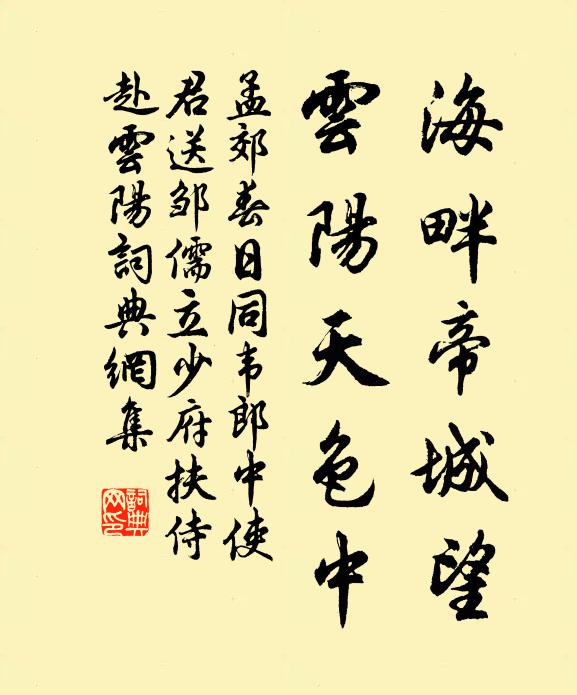 海畔帝城望
雲陽天色中
孟郊春日同韦郎中使
君送邹儒立少府扶侍
赴雲陽詞典網集
詞典
网印